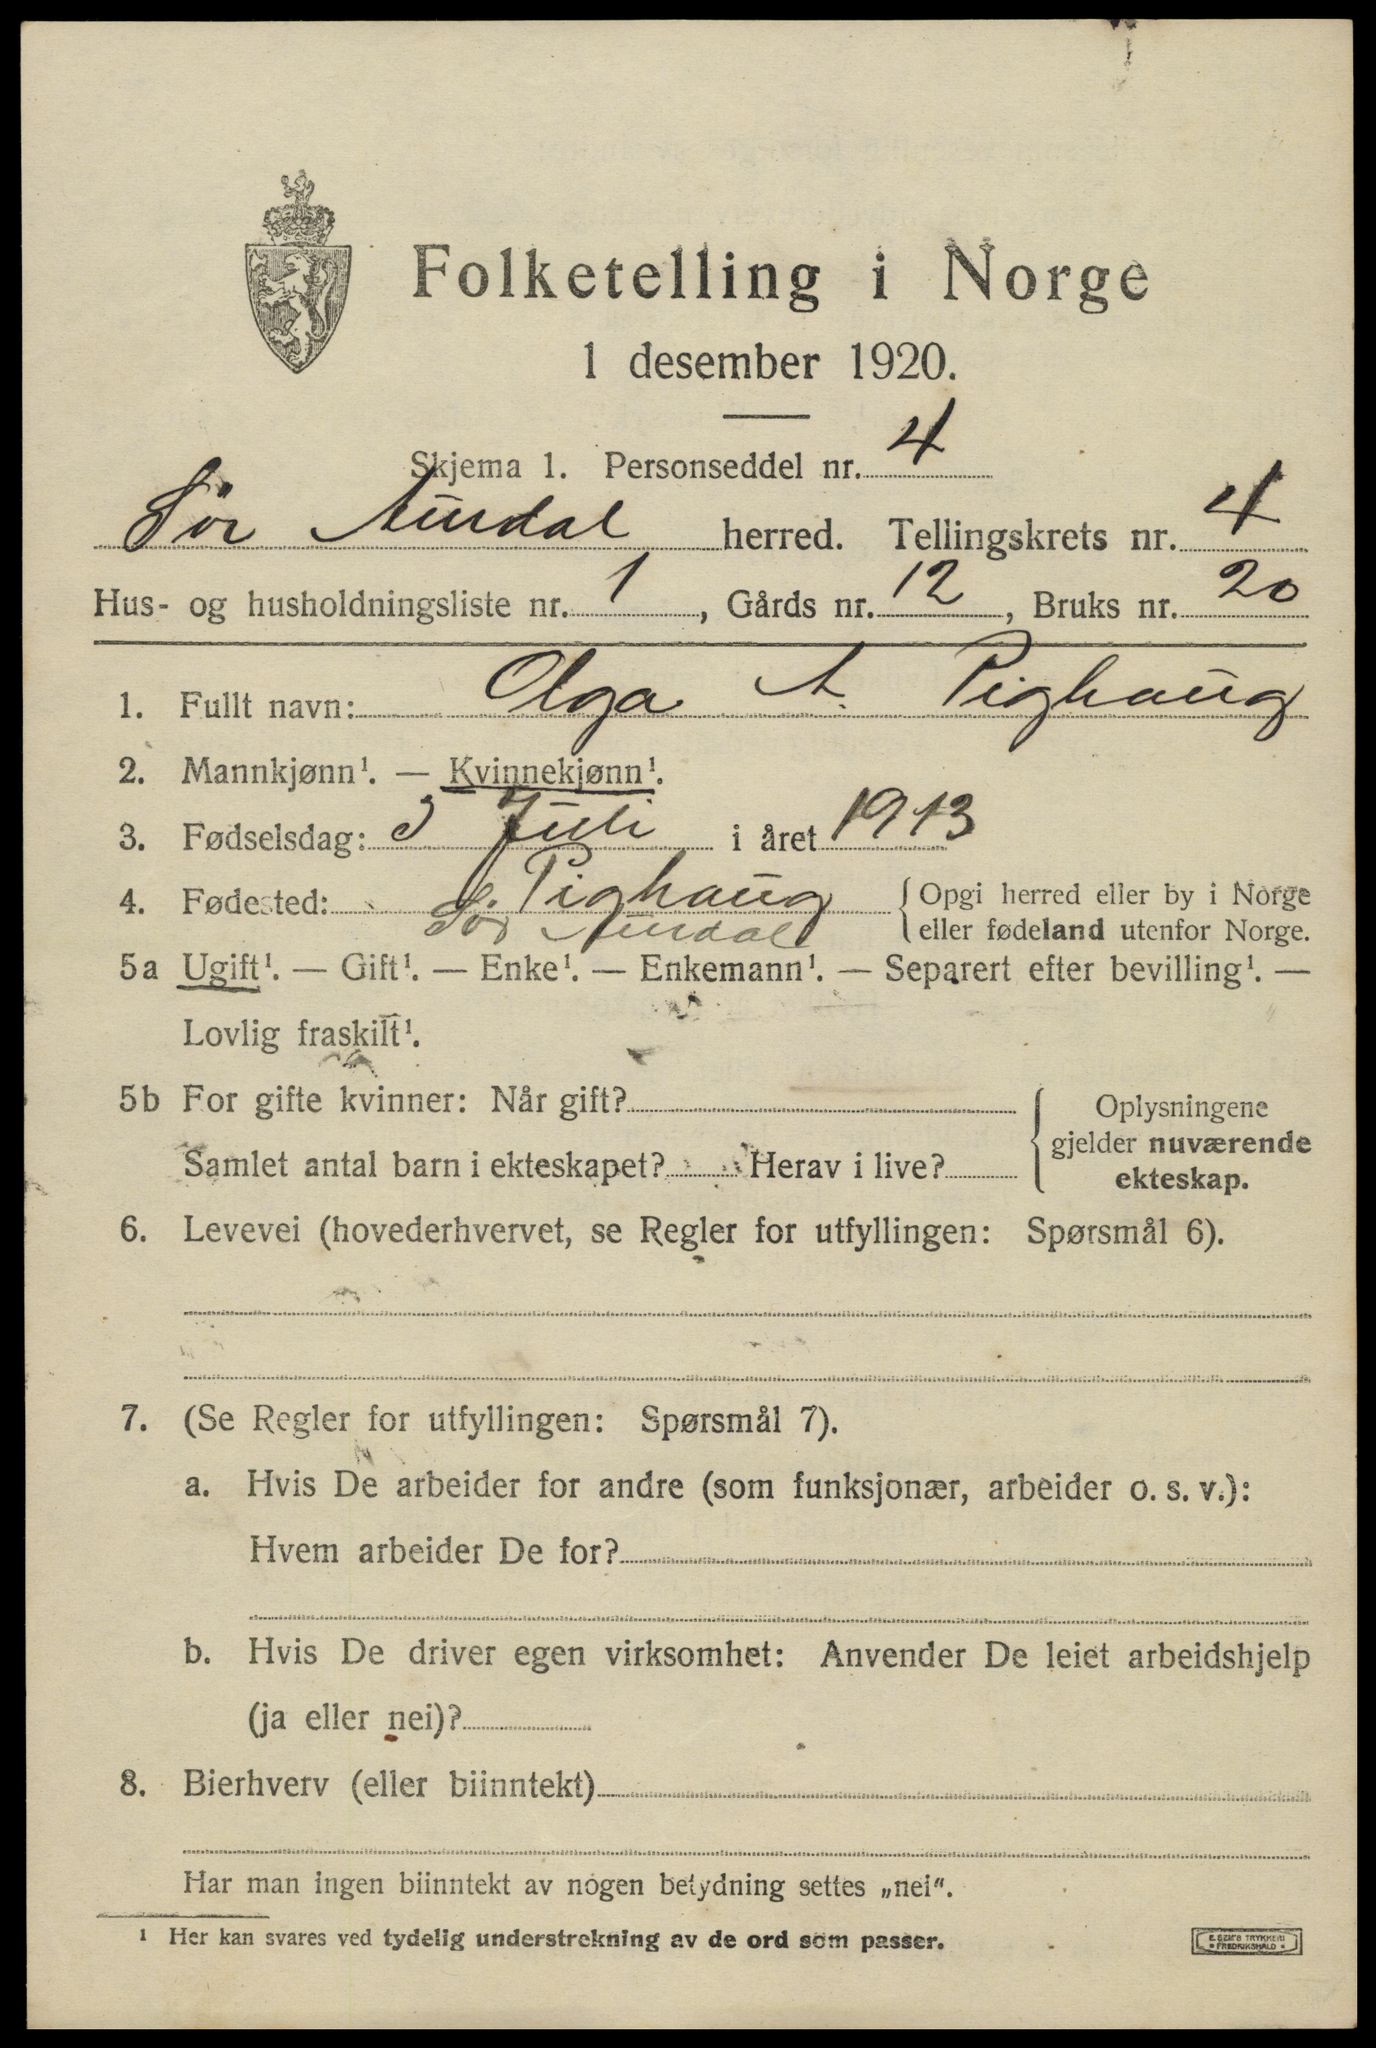 Folketelling i Norge
1 desember 1920.
Skjema 1. Personseddel nr. 4
Sør Aurdal herred. Tellingskrets nr. 4
Hus- og husholdningsliste nr. 1, Gårds nr. 12, Bruks nr. 20
1. Fullt navn: Olga A. Pighaug
2. Mannkjønn¹. — Kvinnekjønn¹.
3. Fødselsdag: 3 Juli i året 1913
4. Fødested: S. Pighaug { Opgi herred eller by i Norge
Sør Aurdal eller fødeland utenfor Norge.
5a Ugift¹. — Gift¹. — Enke¹. — Enkemann¹. — Separert efter bevilling¹. —
Lovlig fraskilt¹.
5b For gifte kvinner: Når gift? { Oplysningene
gjelder nuværende
Samlet antal barn i ekteskapet? Herav i live? ekteskap.
6. Levevei (hovederhvervet, se Regler for utfyllingen: Spørsmål 6).
7. (Se Regler for utfyllingen: Spørsmål 7).
a. Hvis De arbeider for andre (som funksjonær, arbeider o. s. v.):
Hvem arbeider De for?
b. Hvis De driver egen virksomhet: Anvender De leiet arbeidshjelp
(ja eller nei)?
8. Bierhverv (eller biinntekt)
Har man ingen biinntekt av nogen betydning settes „nei“.
¹ Her kan svares ved tydelig understrekning av de ord som passer.
E. SEM'S TRYKKERI
FREDRIKSHALD